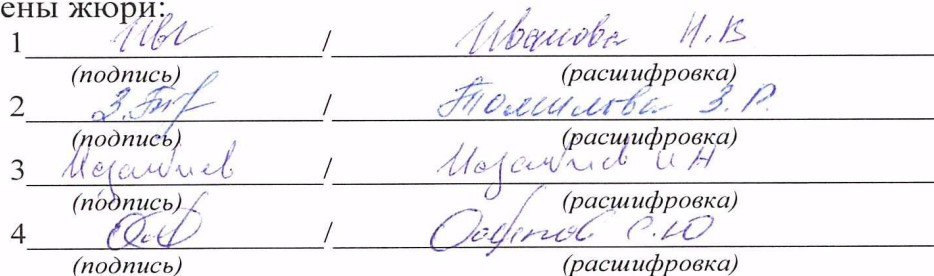 ены жюри:
1 / Иванова Н.В
(подпись) (расшифровка)
2 З. / Томилова З.Р.
(подпись) (расшифровка)
3 / И Н
(подпись) (расшифровка)
4 / С.Ю
(подпись) (расшифровка)